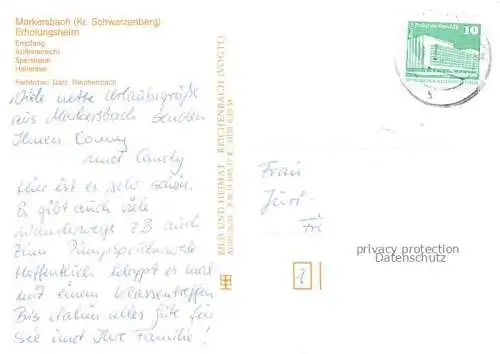 Markersbach (Kr. Schwarzenberg)
Erholungsheim
Empfang
Außenansicht
Speisesaal
Hallenbar
Farbfotos: Darr, Reichenbach
Viele nette Urlaubsgrüße
aus Markersbach senden
Ihnen Conny
und Candy
Hier ist es sehr schön.
Es gibt auch viele
Wanderwege z.B auch
zum Pumpspeicherwerk
Hoffentlich klappt es mal
mit einem Klassentreffen
Bis dahin alles gute für
Sie und Ihre Familie!
BILD UND HEIMAT REICHENBACH (VOGTL)
10
Frau
privacy protection
Datenschutz